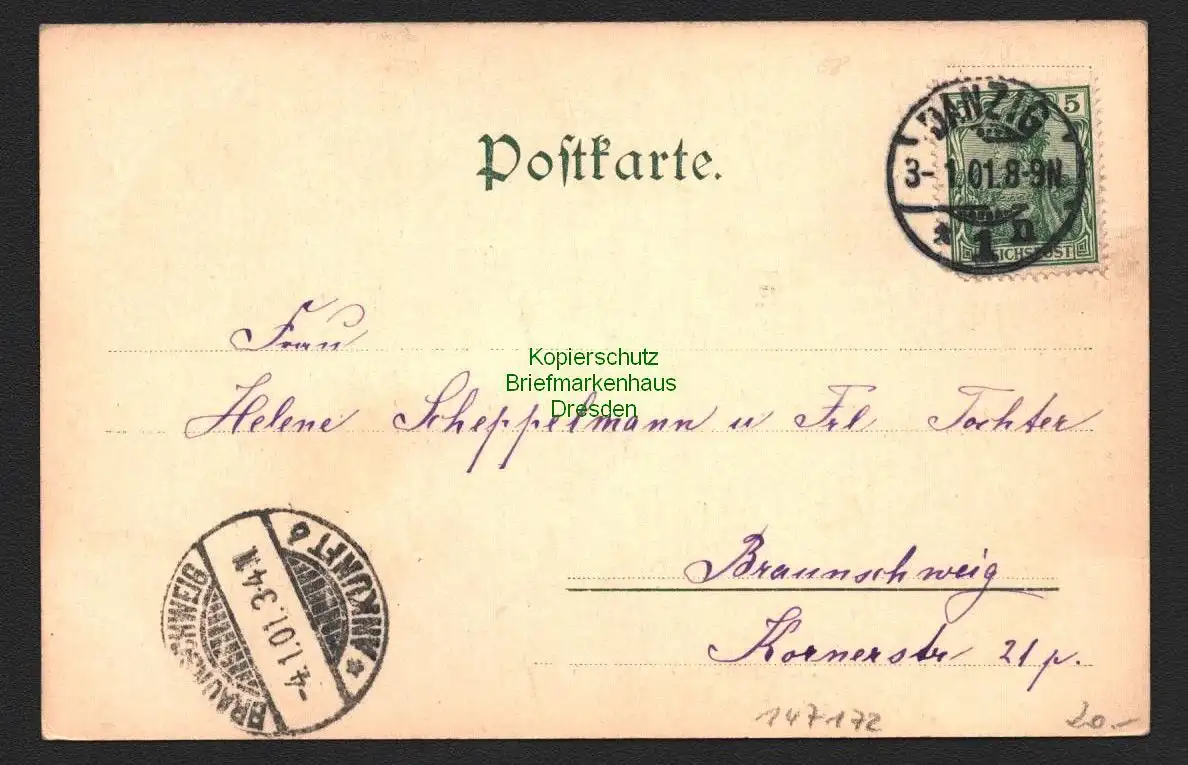 Postkarte.
5
DANZIG
3-1.01.8-9N
* 1 n
REICHSPOST
Frau
Kopierschutz
Briefmarkenhaus
Dresden
Helene Scheppelmann u Frl Tochter
Braunschweig
Kornerstr 21 p.
BRAUNSCHWEIG
-4.1.01.3-4N
* ANKUNFT 6
147172
20.-